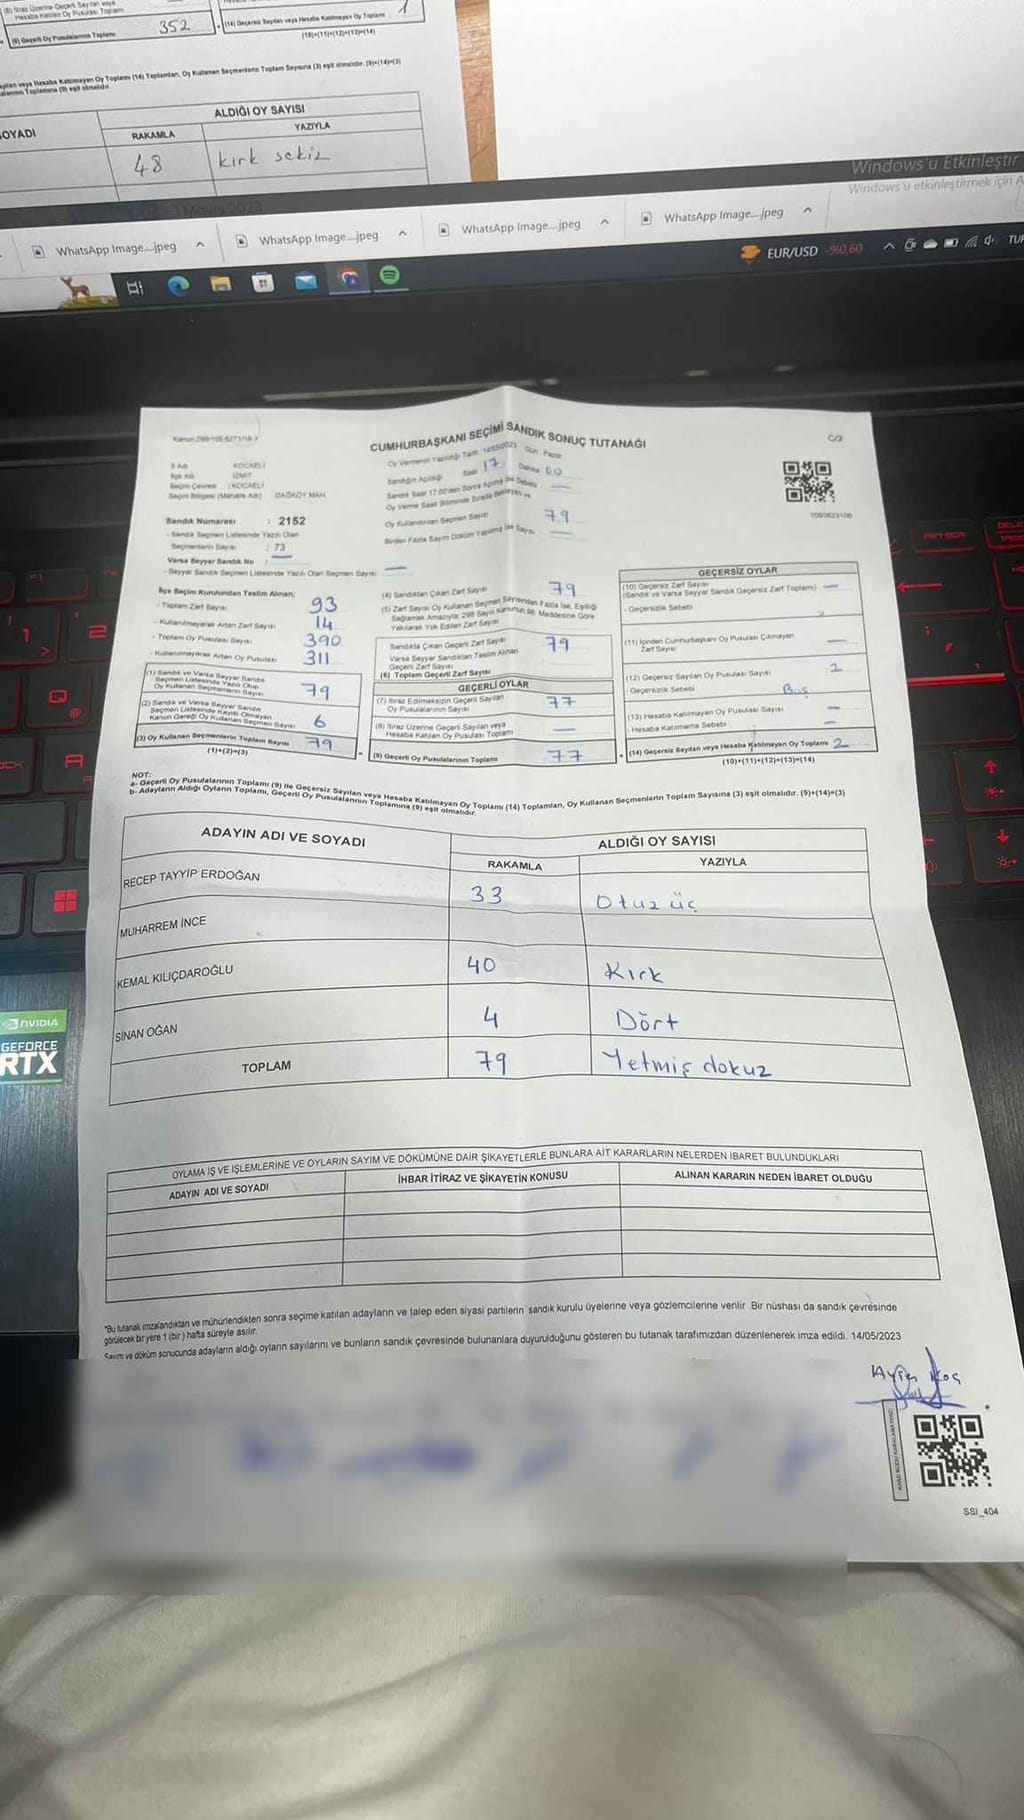 (8) İtiraz Üzerine Geçerli Sayılan veya
Hesaba Katılan Oy Pusulası Toplamı
(9) Geçerli Oy Pusulalarının Toplamı 352
(14) Geçersiz Sayılan veya Hesaba Katılmayan Oy Toplamı 1
(10)+(11)+(12)+(13)=(14)
Sayılan veya Hesaba Katılmayan Oy Toplamı (14) Toplamları, Oy Kullanan Seçmenlerin Toplam Sayısına (3) eşit olmalıdır. (9)+(14)=(3)
Toplamına (9) eşit olmalıdır.
SOYADI
ALDIĞI OY SAYISI
RAKAMLA
YAZIYLA
48
kırk sekiz
Windows'u Etkinleştir
Windows'u etkinleştirmek için A
WhatsApp Image....jpeg
WhatsApp Image....jpeg
WhatsApp Image....jpeg
WhatsApp Image....jpeg
EUR/USD -%0,60
TUR
CUMHURBAŞKANI SEÇİMİ SANDIK SONUÇ TUTANAĞI
C/2
Oy Vermenin Yapıldığı Tarih 14/05/2023 Gün Pazar
İl Adı KOCAELİ
İlçe Adı İZMİT
Seçim Çevresi : KOCAELİ
Seçim Bölgesi (Mahalle Adı) DAĞKÖY MAH
Sandığın Açıldığı Saat 17 Dakika 00
Sandık Saat 17:00'den Sonra Açılmış İse Sebebi —
Oy Verme Saati Bitiminde Sırada Bekleyen ve
Oy Kullandırılan Seçmen Sayısı 79
Birden Fazla Sayım Döküm Yapılmış İse Sayısı —
Sandık Numarası : 2152
- Sandık Seçmen Listesinde Yazılı Olan
Seçmenlerin Sayısı : 73
Varsa Seyyar Sandık No —
- Seyyar Sandık Seçmen Listesinde Yazılı Olan Seçmen Sayısı —
İlçe Seçim Kurulundan Teslim Alınan;
- Toplam Zarf Sayısı 93
- Kullanılmayarak Artan Zarf Sayısı 14
- Toplam Oy Pusulası Sayısı 390
- Kullanılmayarak Artan Oy Pusulası 311
(1) Sandık ve Varsa Seyyar Sandık
Seçmen Listesinde Yazılı Olup
Oy Kullanan Seçmenlerin Sayısı 79
(2) Sandık ve Varsa Seyyar Sandık
Seçmen Listesinde Kayıtlı Olmayan
Kanun Gereği Oy Kullanan Seçmen Sayısı 6
(3) Oy Kullanan Seçmenlerin Toplam Sayısı 79
(1)+(2)=(3)
(4) Sandıktan Çıkan Zarf Sayısı 79
(5) Zarf Sayısı Oy Kullanan Seçmen Sayısından Fazla İse, Eşitliği
Sağlamak Amacıyla; 298 Sayılı Kanunun 98. Maddesine Göre
Yakılarak Yok Edilen Zarf Sayısı
Sandıkta Çıkan Geçerli Zarf Sayısı
Varsa Seyyar Sandıktan Teslim Alınan
Geçerli Zarf Sayısı
(6) Toplam Geçerli Zarf Sayısı 79
GEÇERLİ OYLAR
(7) İtiraz Edilmeksizin Geçerli Sayılan
Oy Pusulalarının Sayısı 77
(8) İtiraz Üzerine Geçerli Sayılan veya
Hesaba Katılan Oy Pusulası Toplamı —
(9) Geçerli Oy Pusulalarının Toplamı 77
GEÇERSİZ OYLAR
(10) Geçersiz Zarf Sayısı
(Sandık ve Varsa Seyyar Sandık Geçersiz Zarf Toplamı) —
- Geçersizlik Sebebi
(11) İçinden Cumhurbaşkanı Oy Pusulası Çıkmayan
Zarf Sayısı —
(12) Geçersiz Sayılan Oy Pusulası Sayısı 2
- Geçersizlik Sebebi Boş
(13) Hesaba Katılmayan Oy Pusulası Sayısı —
- Hesaba Katılmama Sebebi —
(14) Geçersiz Sayılan veya Hesaba Katılmayan Oy Toplamı 2
(10)+(11)+(12)+(13)=(14)
NOT:
a- Geçerli Oy Pusulalarının Toplamı (9) ile Geçersiz Sayılan veya Hesaba Katılmayan Oy Toplamı (14) Toplamları, Oy Kullanan Seçmenlerin Toplam Sayısına (3) eşit olmalıdır. (9)+(14)=(3)
b- Adayların Aldığı Oyların Toplamı, Geçerli Oy Pusulalarının Toplamına (9) eşit olmalıdır.
ADAYIN ADI VE SOYADI
ALDIĞI OY SAYISI
RAKAMLA
YAZIYLA
RECEP TAYYİP ERDOĞAN 33 Otuz üç
MUHARREM İNCE
KEMAL KILIÇDAROĞLU 40 Kırk
SİNAN OĞAN 4 Dört
TOPLAM 79 Yetmiş dokuz
OYLAMA İŞ VE İŞLEMLERİNE VE OYLARIN SAYIM VE DÖKÜMÜNE DAİR ŞİKAYETLERLE BUNLARA AİT KARARLARIN NELERDEN İBARET BULUNDUKLARI
ADAYIN ADI VE SOYADI
İHBAR İTİRAZ VE ŞİKAYETİN KONUSU
ALINAN KARARIN NEDEN İBARET OLDUĞU
*Bu tutanak imzalandıktan ve mühürlendikten sonra seçime katılan adayların ve talep eden siyasi partilerin sandık kurulu üyelerine veya gözlemcilerine verilir. Bir nüshası da sandık çevresinde
görülecek bir yere 1 (bir) hafta süreyle asılır.
Sayım ve döküm sonucunda adayların aldığı oyların sayılarını ve bunların sandık çevresinde bulunanlara duyurulduğunu gösteren bu tutanak tarafımızdan düzenlenerek imza edildi. 14/05/2023
Koç
SSI_404
NVIDIA
GEFORCE
RTX